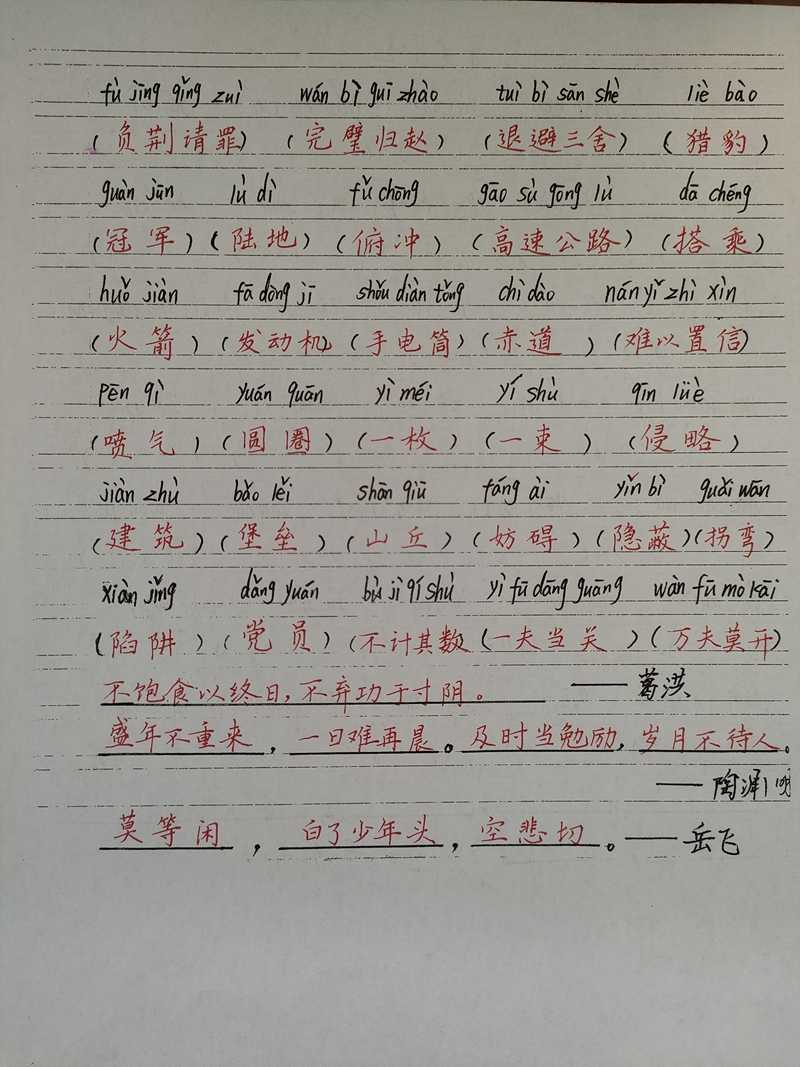 fù jīng qǐng zuì wán bì guī zhào tuì bì sān shè liè bào
(负荆请罪) (完璧归赵) (退避三舍) (猎豹)
guàn jūn lù dì fǔ chōng gāo sù gōng lù dā chéng
(冠军) (陆地) (俯冲) (高速公路) (搭乘)
huǒ jiàn fā dòng jī shǒu diàn tǒng chì dào nán yǐ zhì xìn
(火箭) (发动机) (手电筒) (赤道) (难以置信)
pēn qì yuán quān yì méi yí shù qīn lüè
(喷气) (圆圈) (一枚) (一束) (侵略)
jiàn zhù bǎo lěi shān qiū fáng ài yǐn bì guǎi wān
(建筑) (堡垒) (山丘) (妨碍) (隐蔽) (拐弯)
xiàn jǐng dǎng yuán bù jì qí shù yì fū dāng guāng wàn fū mò kāi
(陷阱) (党员) (不计其数) (一夫当关) (万夫莫开)
不饱食以终日,不弃功于寸阴。 ——葛洪
盛年不重来,一日难再晨。及时当勉励,岁月不待人。
——陶渊明
莫等闲,白了少年头,空悲切。——岳飞